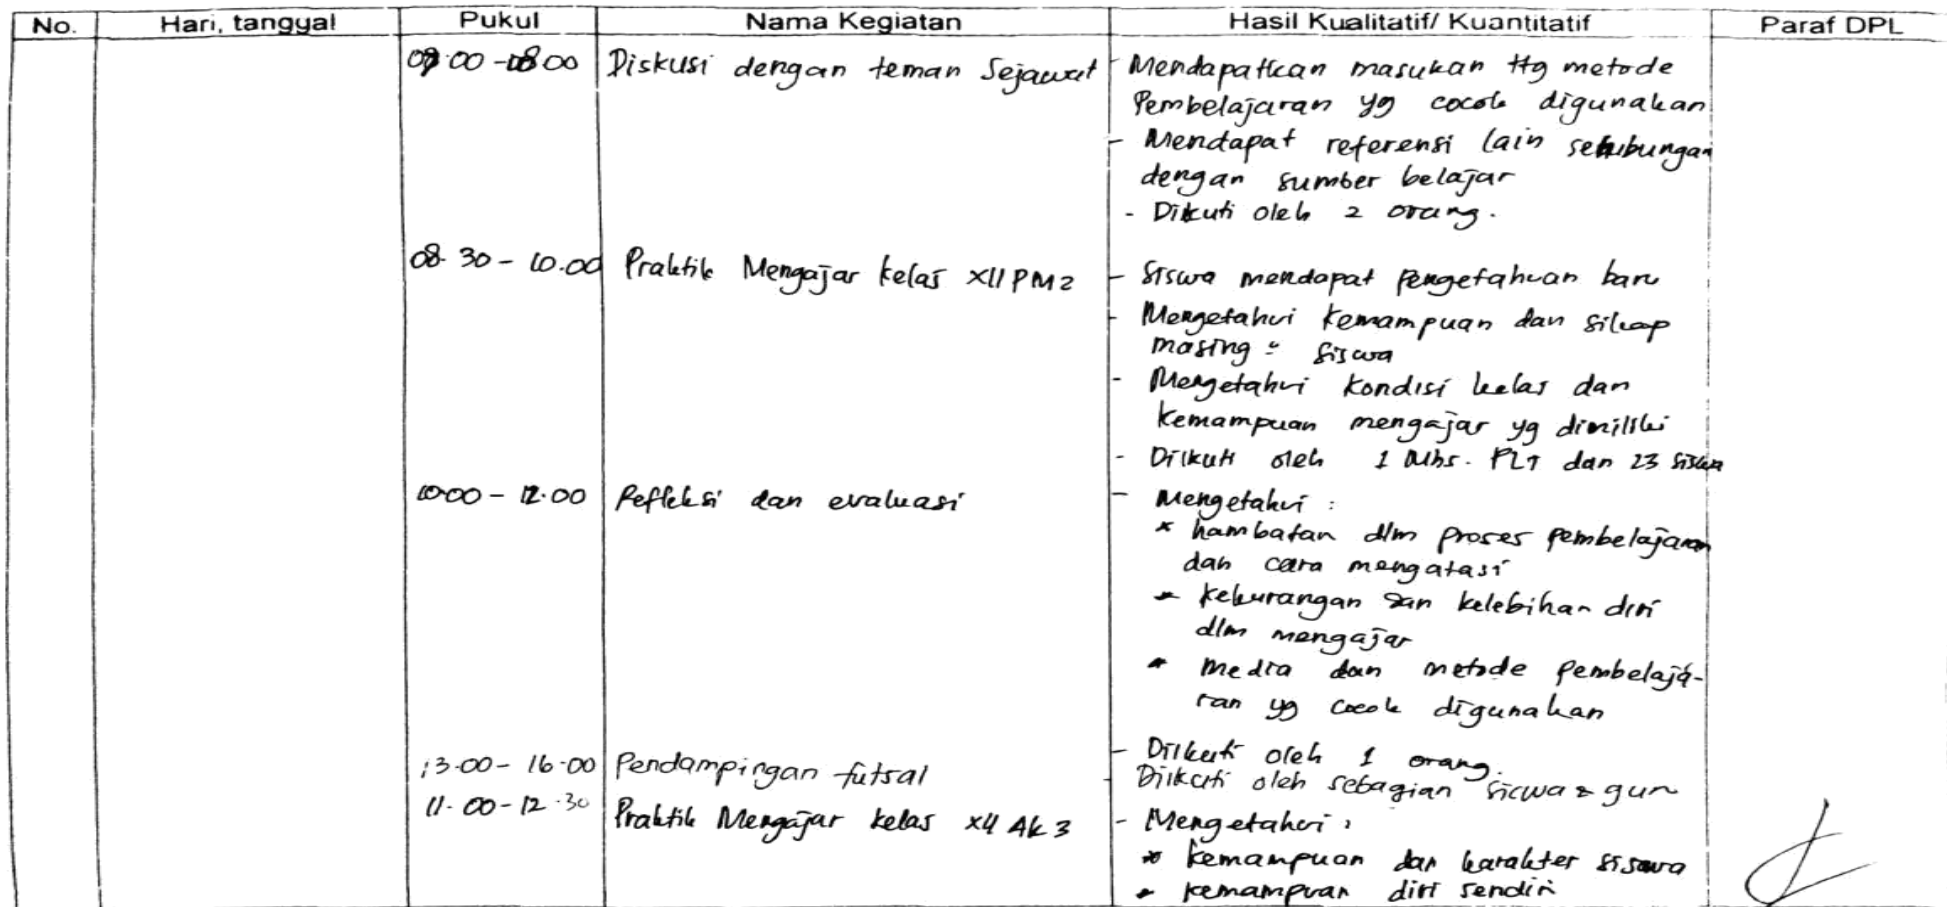 No. Hari, tanggal Pukul Nama Kegiatan Hasil Kualitatif/ Kuantitatif Paraf DPL
07.00 - 08.00 Diskusi dengan teman Sejawat - Mendapatkan masukan ttg metode
Pembelajaran yg cocok digunakan
- Mendapat referensi lain sehubungan
dengan sumber belajar
- Diikuti oleh 2 orang.
08.30 - 10.00 Praktik Mengajar kelas XII PM2 - Siswa mendapat Pengetahuan baru
- Mengetahui kemampuan dan sikap
masing " siswa
- Mengetahui kondisi kelas dan
kemampuan mengajar yg dimiliki
- Diikuti oleh 1 Mhs. PLT dan 23 siswa
10.00 - 12.00 Refleksi dan evaluasi - Mengetahui :
* hambatan dlm proses pembelajaran
dan cara mengatasi
* kekurangan dan kelebihan diri
dlm mengajar
* media dan metode pembelaja-
ran yg cocok digunakan
- Diikuti oleh 1 orang.
13.00 - 16.00 Pendampingan futsal - Diikuti oleh sebagian siswa & guru
11.00 - 12.30 Praktik Mengajar kelas XII AK 3 - Mengetahui :
* kemampuan dan karakter siswa
* kemampuan diri sendiri